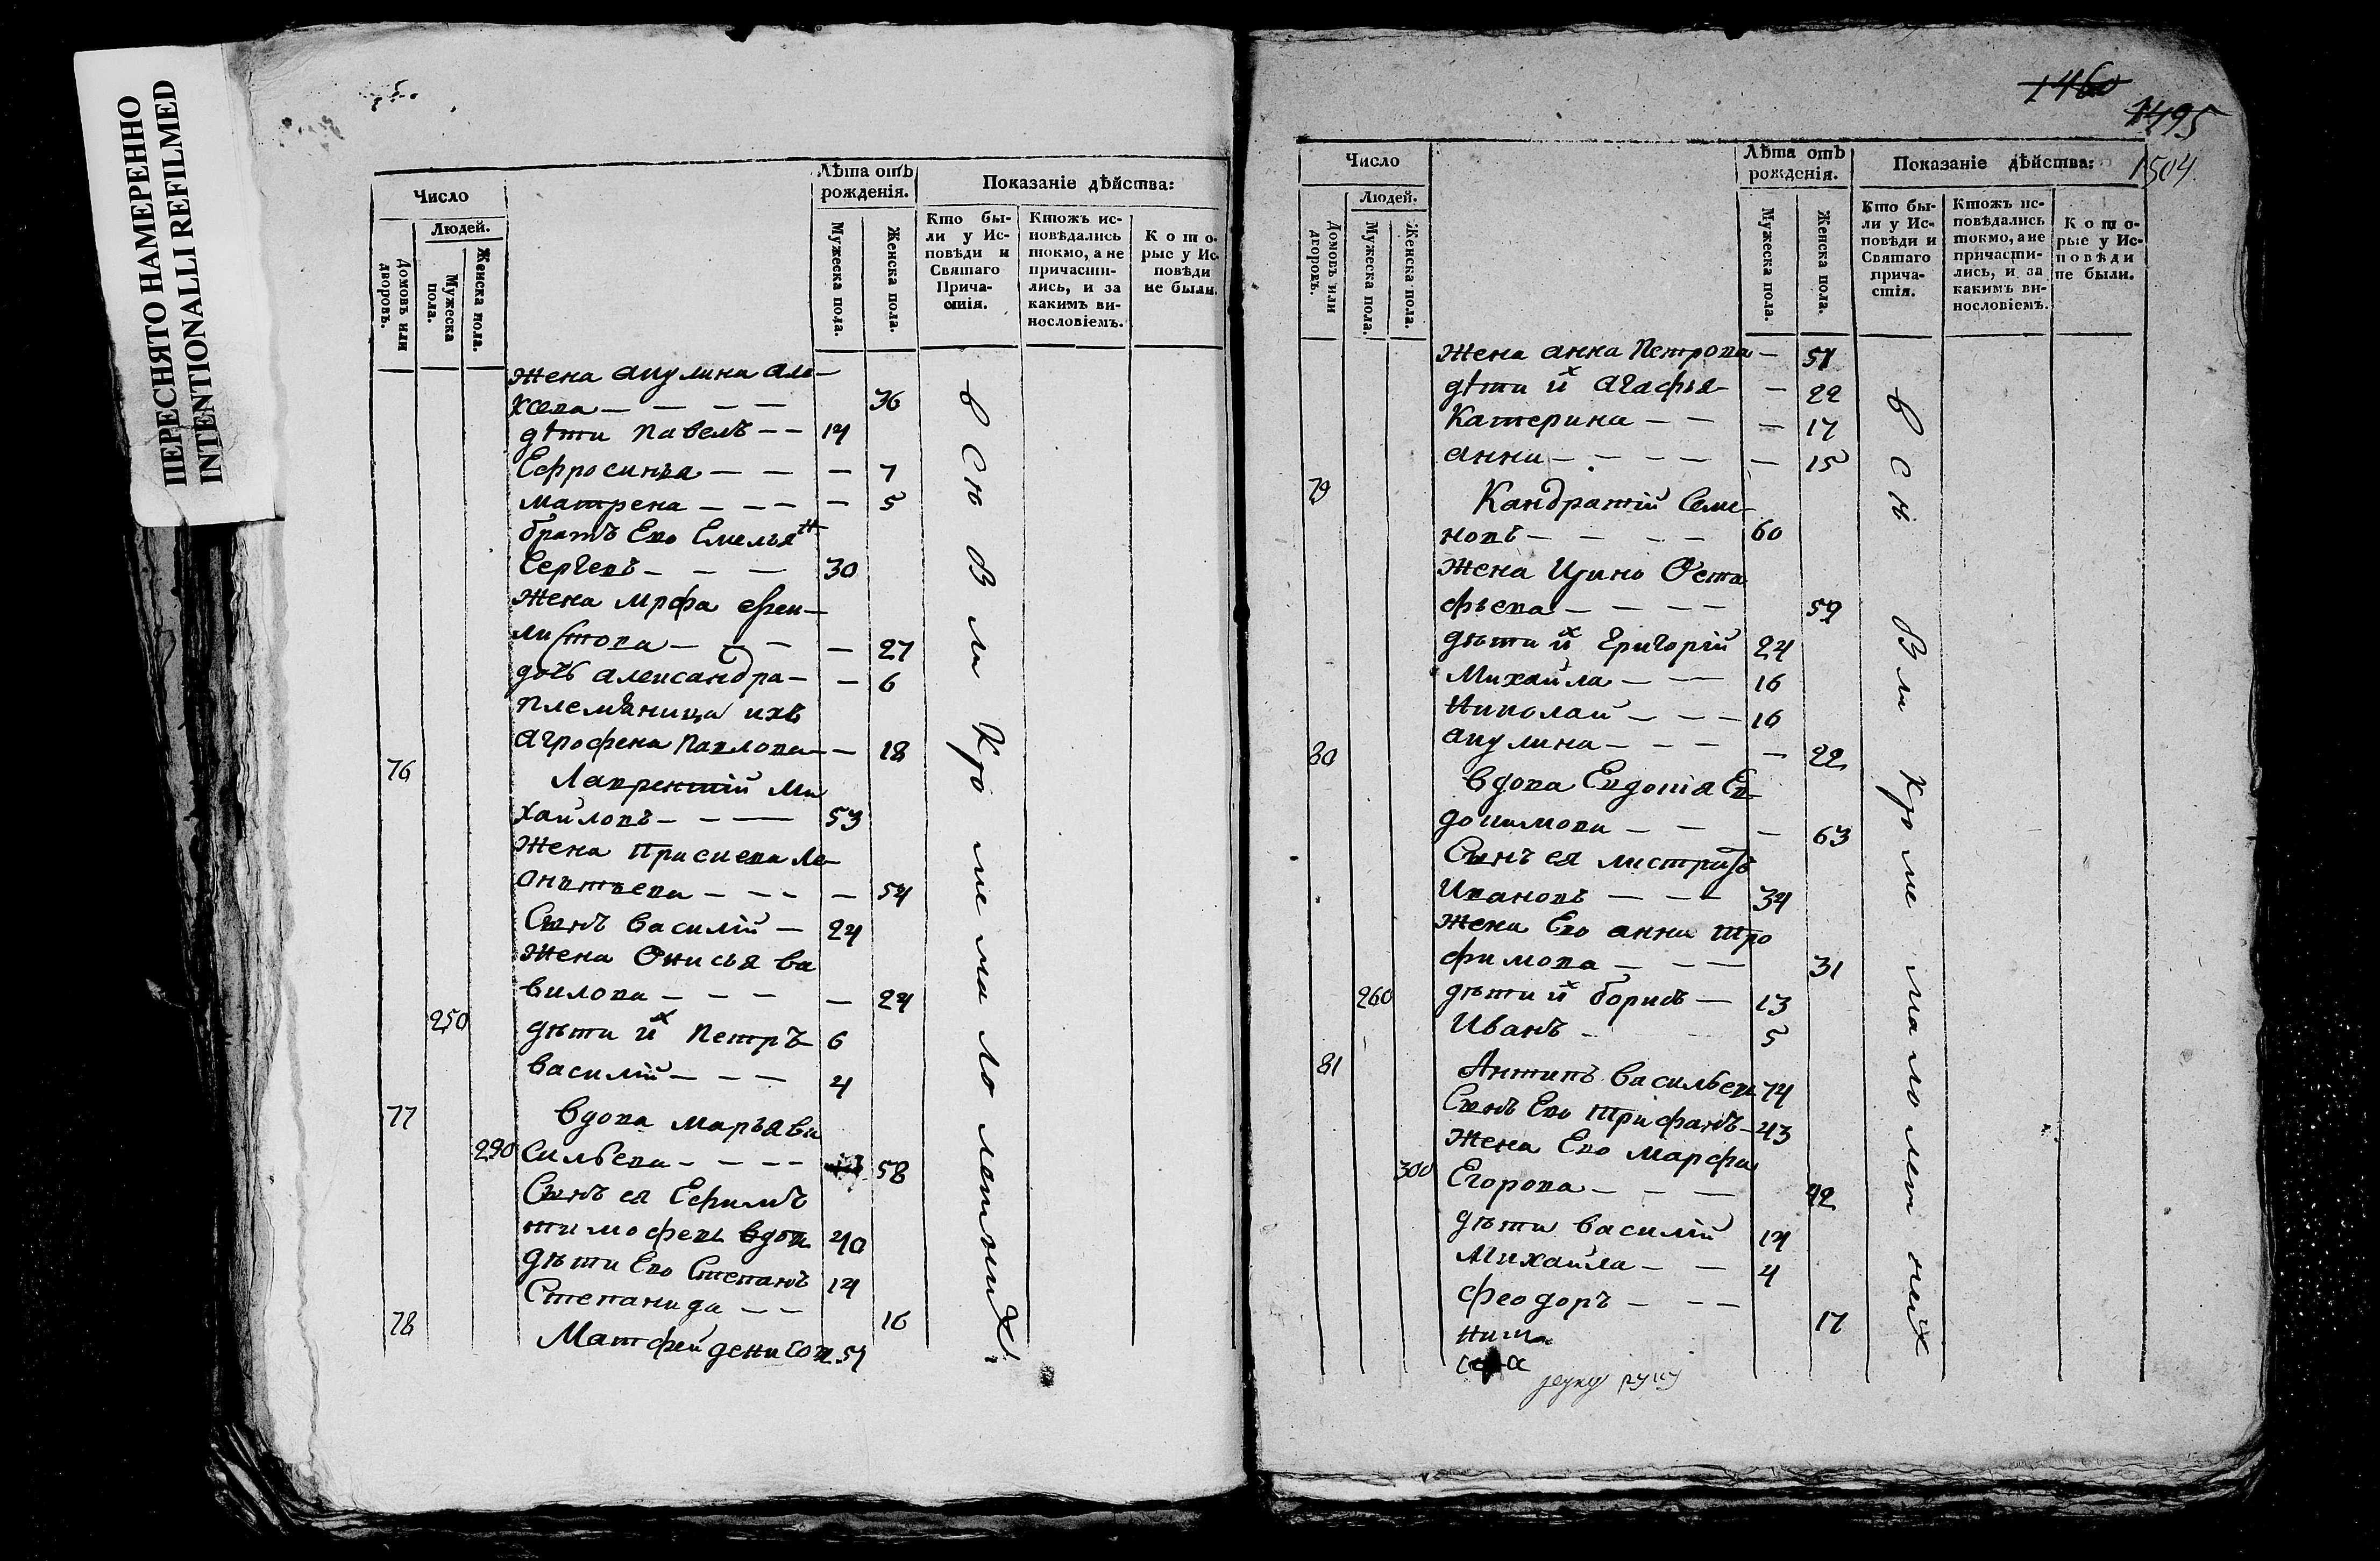 ПЕРЕСНЯТО НАМЕРЕННО
INTENTIONALLI REFILMED
Число
Людей.
Домовъ или дворовъ.
Мужеска пола.
Женска пола.
Лѣта отъ рожденія.
Мужеска пола.
Женска пола.
Показаніе дѣйства:
Кто бы-
ли у Ис-
повѣди и
Святаго
Прича-
стія.
Ктожъ ис-
повѣдались
токмо, а не
причасти-
лись, и за
какимъ ви-
нословіемъ.
Кото-
рые у Ис-
повѣди
не были.
жена акулина але-
ксѣва — — — — 36
дѣти павелъ — — 14
Ефросинья — — — 7
матрена — — — — 5
братъ Его Емельян
Сергевъ — — — 30
жена мрфа феи-
листова — — — — 27
дочь александра — — 6
племяница ихъ
Агрофена павлова — — 18
76 Лаврентій Ми
хайловъ — — — 53
жена Присковя Ле-
онтьева — — — — 54
Сынъ василій — 24
жена Онисья ва
вилова — — — — 24
250 дѣти их Петръ 6
василій — — — 4
77 вдова марья ва
290 сильева — — — — 58
Сынъ ея Ефимъ
тимофевъ вдов 40
дѣти Его Степанъ 14
Степанида — — 16
78 Матфей денисов 51
всѣ Были Кроме малолетнихъ
1460
1495
1504
Число
Людей.
Домовъ или дворовъ.
Мужеска пола.
Женска пола.
Лѣта отъ рожденія.
Мужеска пола.
Женска пола.
Показаніе дѣйства:
Кто бы-
ли у Ис-
повѣди и
Святаго
прича-
стія.
Ктожъ ис-
повѣдались
токмо, а не
причасти-
лись, и за
какимъ ви-
нословіемъ.
Кото-
рые у Ис-
повѣди
не были.
жена анна Петрова — 51
дѣти их агафья — 22
Катерина — — — 17
анна — — — — — 15
79 Кандратій Семе-
новъ — — — — 60
жена Ирина Оста
фьева — — — — 59
дѣти их Григорій 24
Михайла — — 16
Николай — — — 16
акулина — — — — 22
80 вдова Евдокія Ев-
докимова — — — 63
Сынъ ея листратъ
Ивановъ — — — 34
жена Его анна тро
фимова — — — 31
260 дѣти их борисъ — 13
Иванъ — 5
81 Антипъ васильевъ 74
Сынъ Его трифанъ — 43
жена Его марфа
300 Егорова — — — 42
дѣти василій 14
Михайла — — 4
феодоръ — — — 17